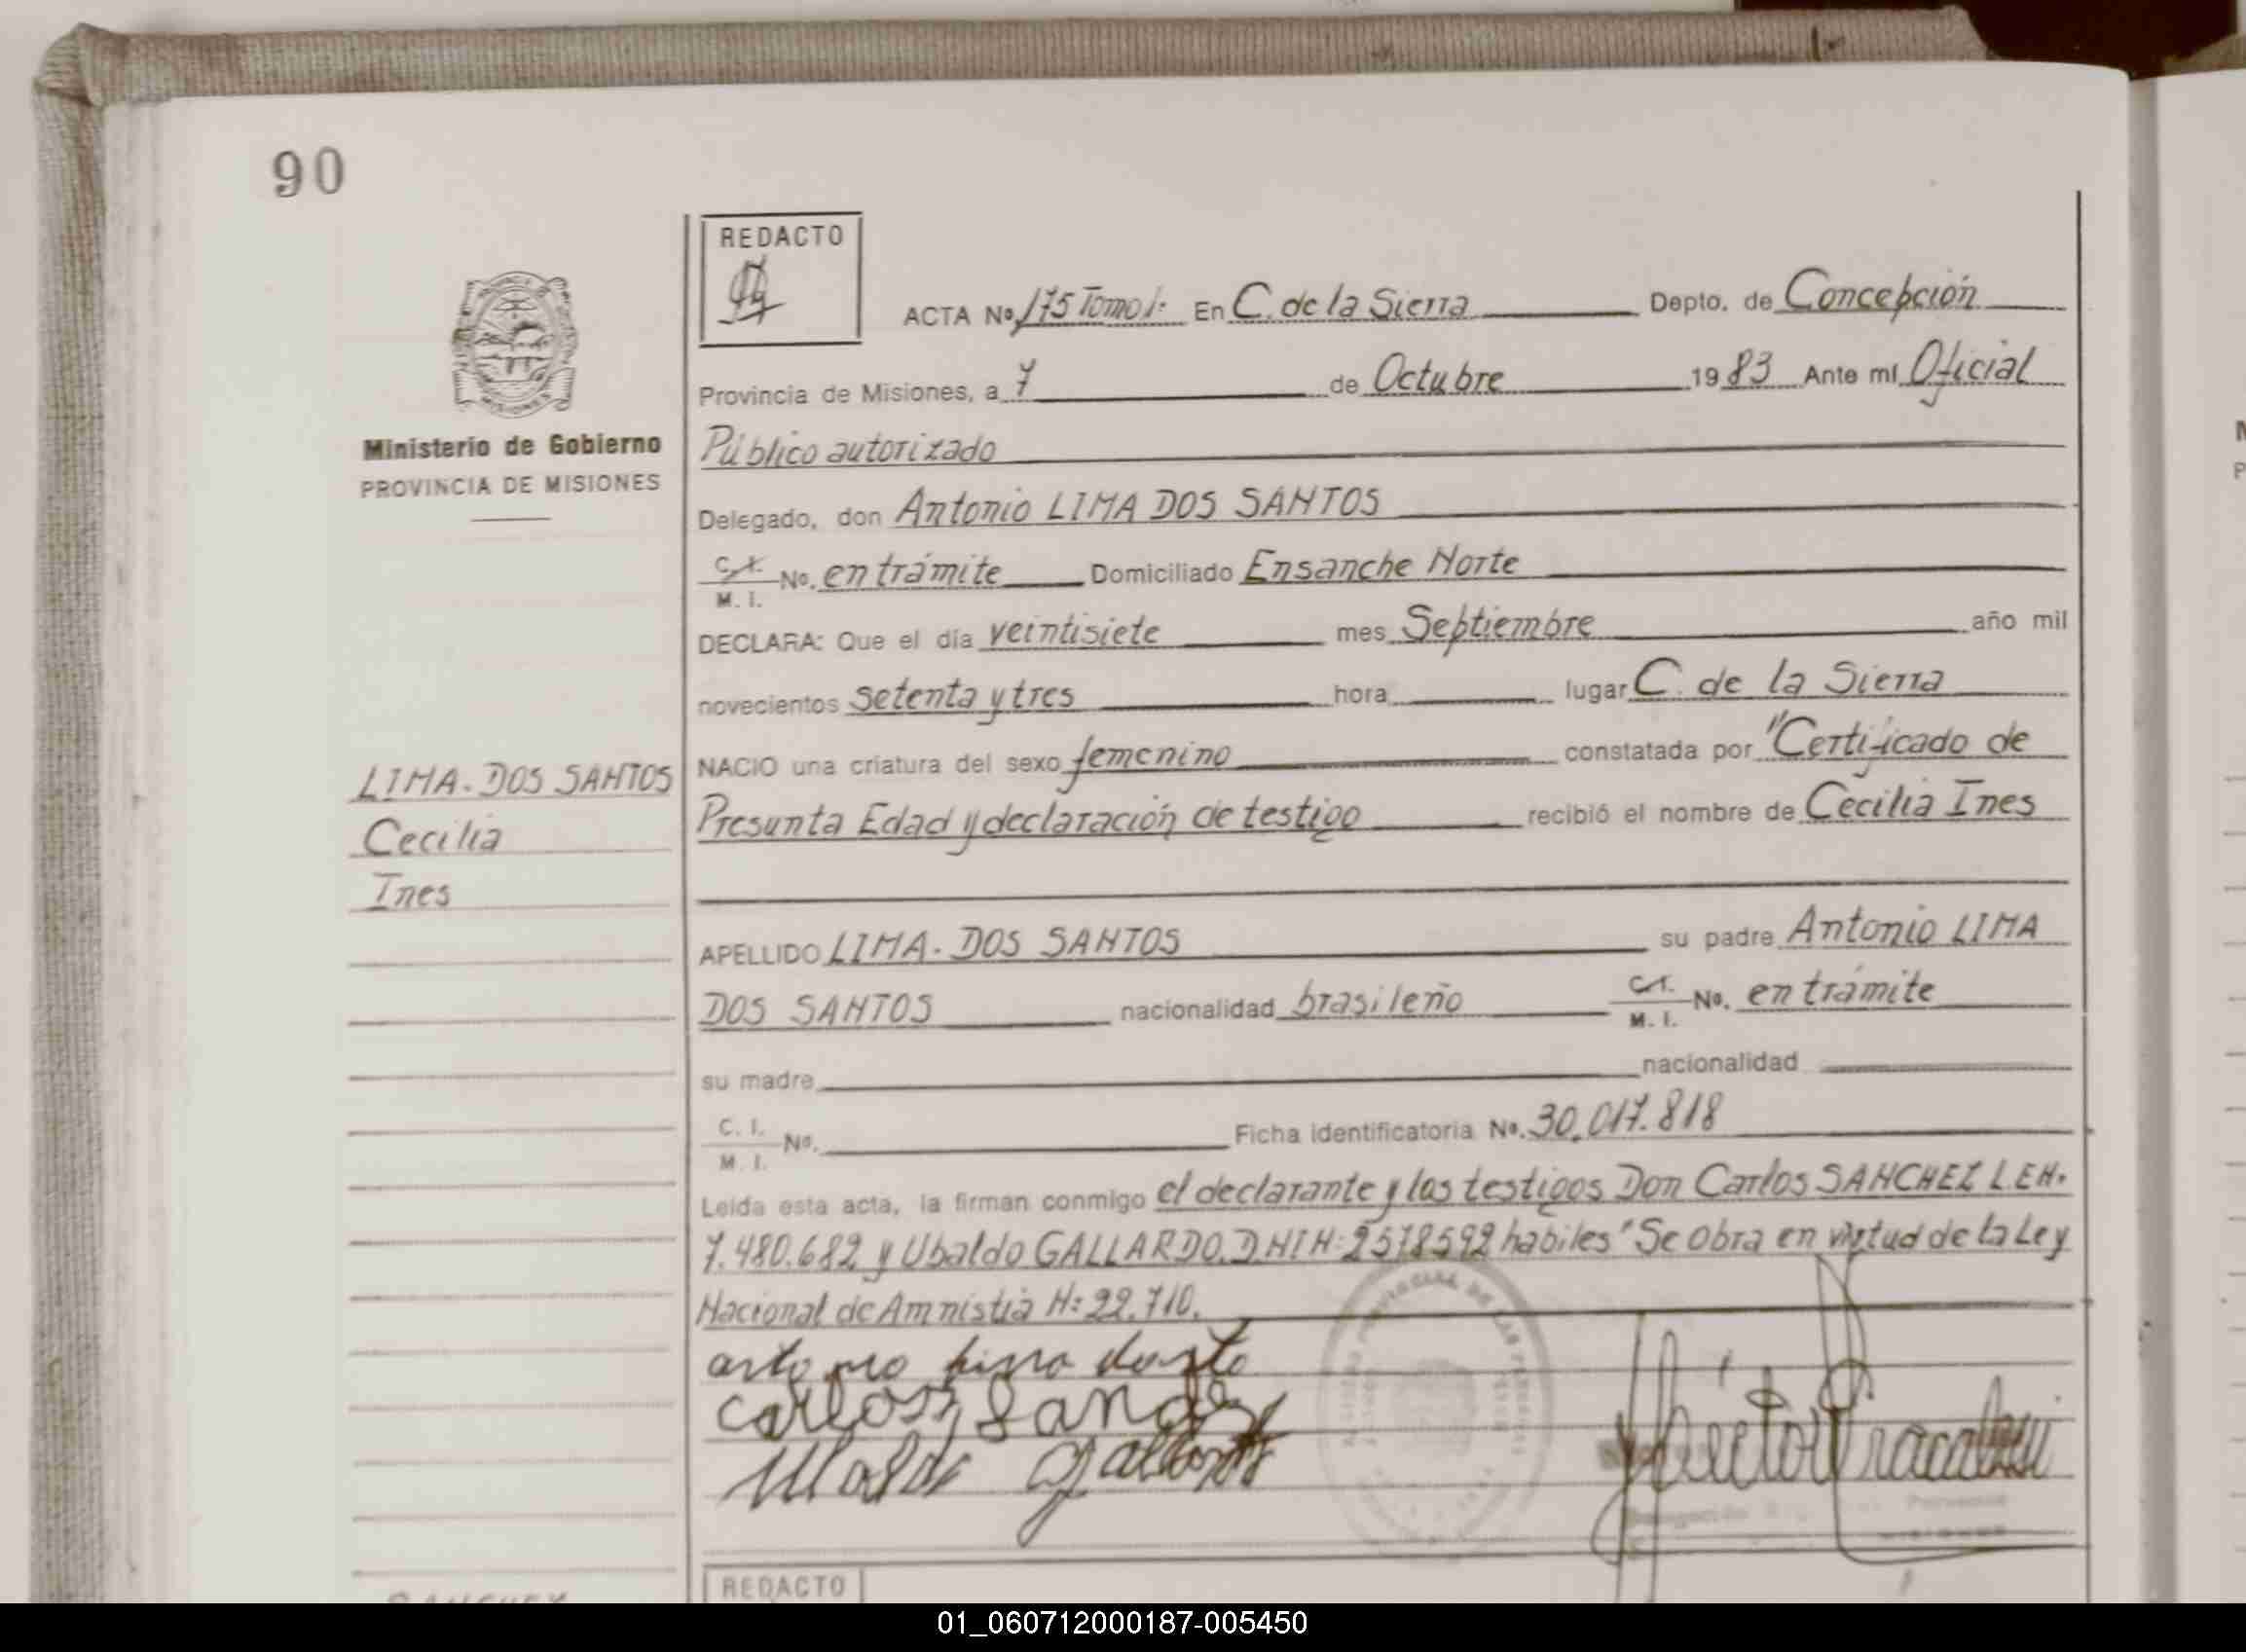 90
REDACTO
ACTA No. 175 Tomo I. En C. de la Sierra Depto. de Concepción
Provincia de Misiones, a 7 de Octubre 19 83 Ante mí Oficial
Público autorizado
Delegado, don Antonio LIMA DOS SANTOS
C. I.
M. I. No. en trámite Domiciliado Ensanche Norte
DECLARA: Que el día veintisiete mes Septiembre año mil
novecientos setenta y tres hora lugar C. de la Sierra
NACIO una criatura del sexo femenino constatada por "Certificado de
Presunta Edad y declaración de testigo recibió el nombre de Cecilia Ines
APELLIDO LIMA. DOS SANTOS su padre Antonio LIMA
DOS SANTOS nacionalidad brasileño C. I.
M. I. No. en trámite
su madre nacionalidad
C. I.
M. I. No. Ficha identificatoria No. 30.017.818
Leída esta acta, la firman conmigo el declarante y los testigos Don Carlos SANCHEZ L EN.
7.480.682 y Ubaldo GALLARDO. D.N I N: 2578592 habiles "Se obra en virtud de la Ley
Nacional de Amnistia N: 22.710.
Carlos
REDACTO
Ministerio de Gobierno
PROVINCIA DE MISIONES
LIMA. DOS SANTOS
Cecilia
Ines
01_060712000187-005450